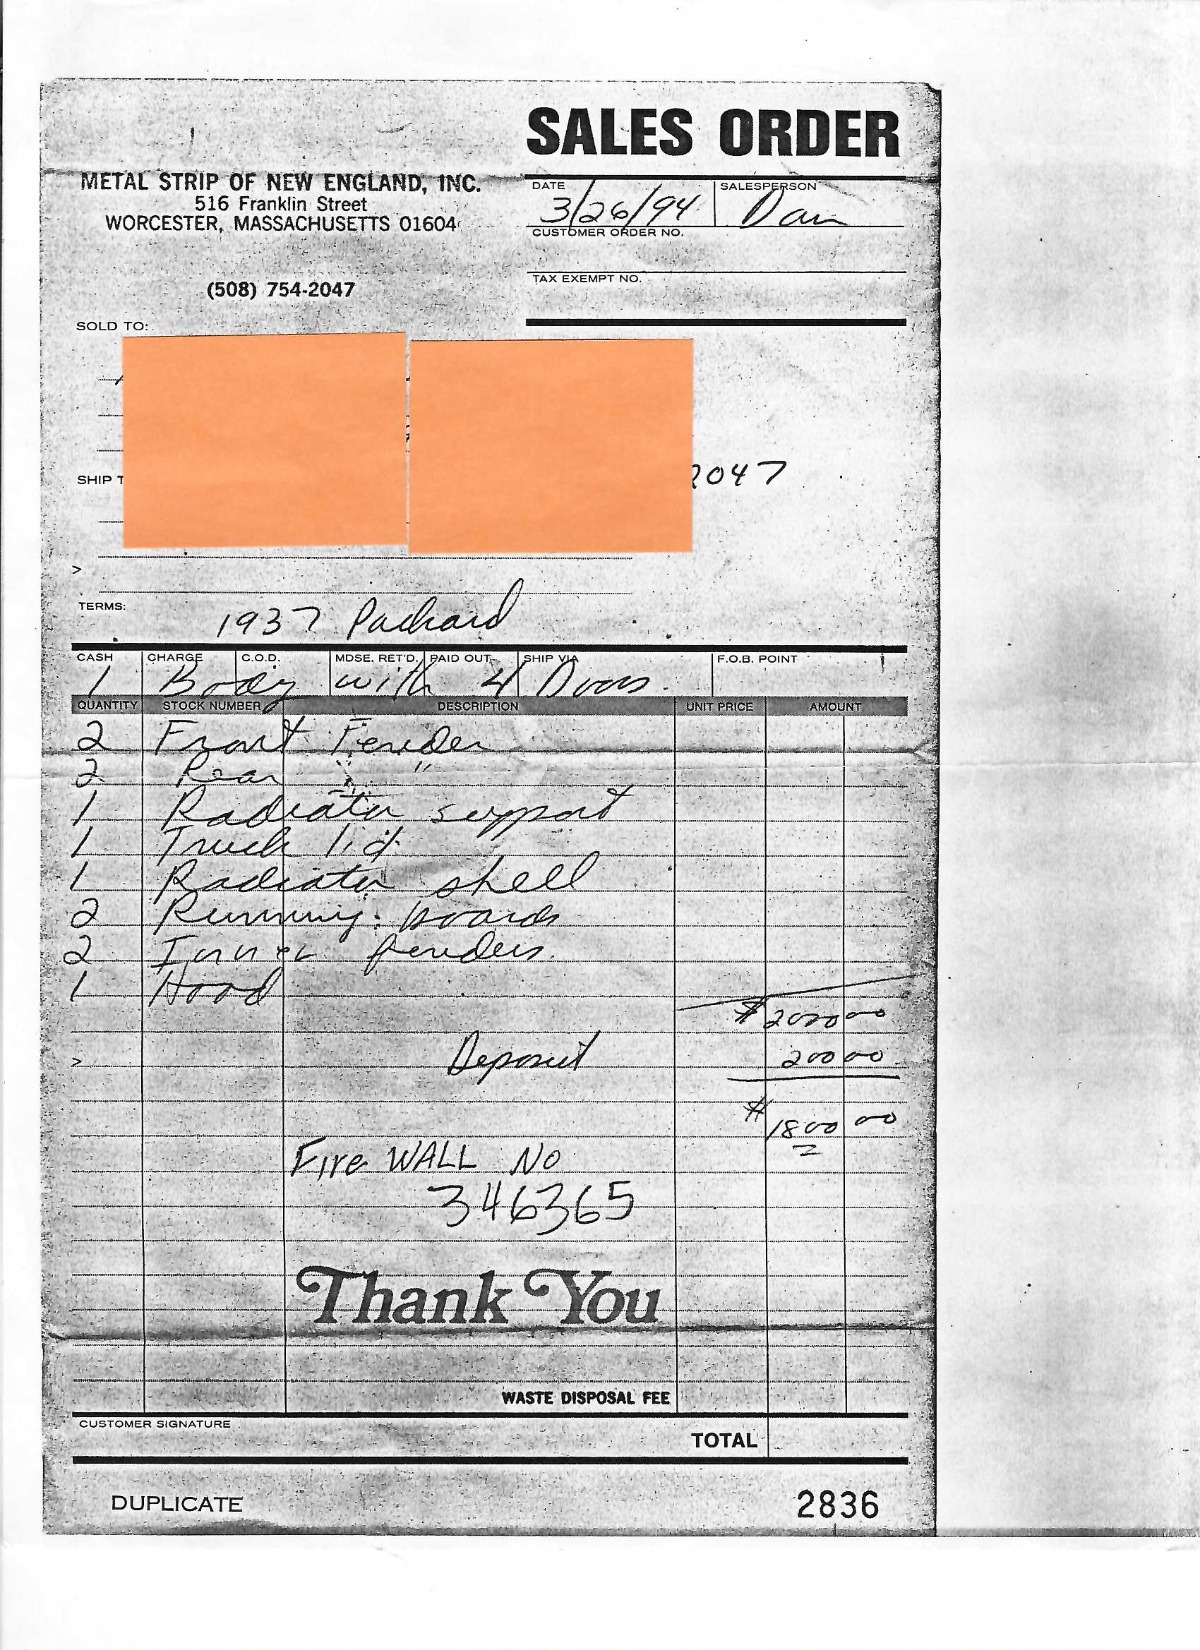 SALES ORDER
METAL STRIP OF NEW ENGLAND, INC.
516 Franklin Street
WORCESTER, MASSACHUSETTS 01604
(508) 754-2047
DATE SALESPERSON
3/26/94 Dan
CUSTOMER ORDER NO.
TAX EXEMPT NO.
SOLD TO:
SHIP T
2047
TERMS:
1937 Packard
CASH CHARGE C.O.D. MDSE. RET'D. PAID OUT SHIP VIA F.O.B. POINT
1 Body with 4 Doors.
QUANTITY STOCK NUMBER DESCRIPTION UNIT PRICE AMOUNT
2 Front Fender
2 Rear " "
1 Radiator support
1 Truck lid.
1 Radiator shell
2 Running boards
2 Inner fenders.
1 Hood
$2000 00
Deposit 200 00
$1800 00
Fire WALL No
346365
Thank You
WASTE DISPOSAL FEE
CUSTOMER SIGNATURE
TOTAL
DUPLICATE 2836